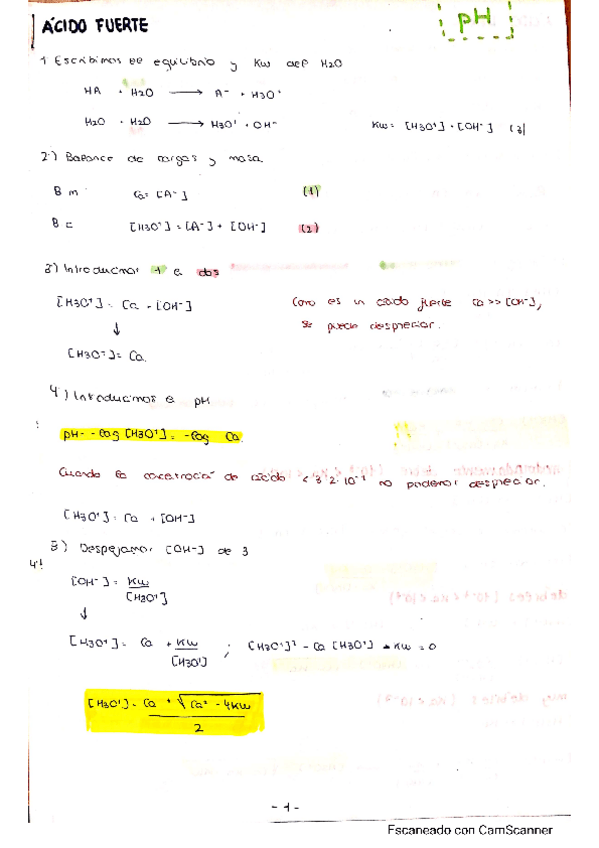 pH
ÁCIDO FUERTE
1 Escribimos el equilibrio y Kw del H2O
HA + H2O ⟶ A⁻ + H3O⁺
H2O + H2O ⟶ H3O⁺ + OH⁻ Kw = [H3O⁺] · [OH⁻] (3)
2) Balance de cargas y masa
B m Ca = [A⁻] (1)
B c [H3O⁺] = [A⁻] + [OH⁻] (2)
3) Introducimos 1 e dos
[H3O⁺] = Ca + [OH⁻] Como es un ácido fuerte Ca >> [OH⁻],
↓ se puede despreciar.
[H3O⁺] = Ca.
4) Introducimos el pH
pH = -log [H3O⁺] = -log Ca
Cuando la concentración de ácido < no podemos despreciar.
[H3O⁺] = Ca + [OH⁻]
3) Despejamos [OH⁻] de 3
4!
[OH⁻] = Kw / [H3O⁺]
↓
[H3O⁺] = Ca + Kw / [H3O⁺] ; [H3O⁺]² - Ca [H3O⁺] - Kw = 0
[H3O⁺] = Ca + √Ca² - 4Kw / 2
- 1 -
Escaneado con CamScanner